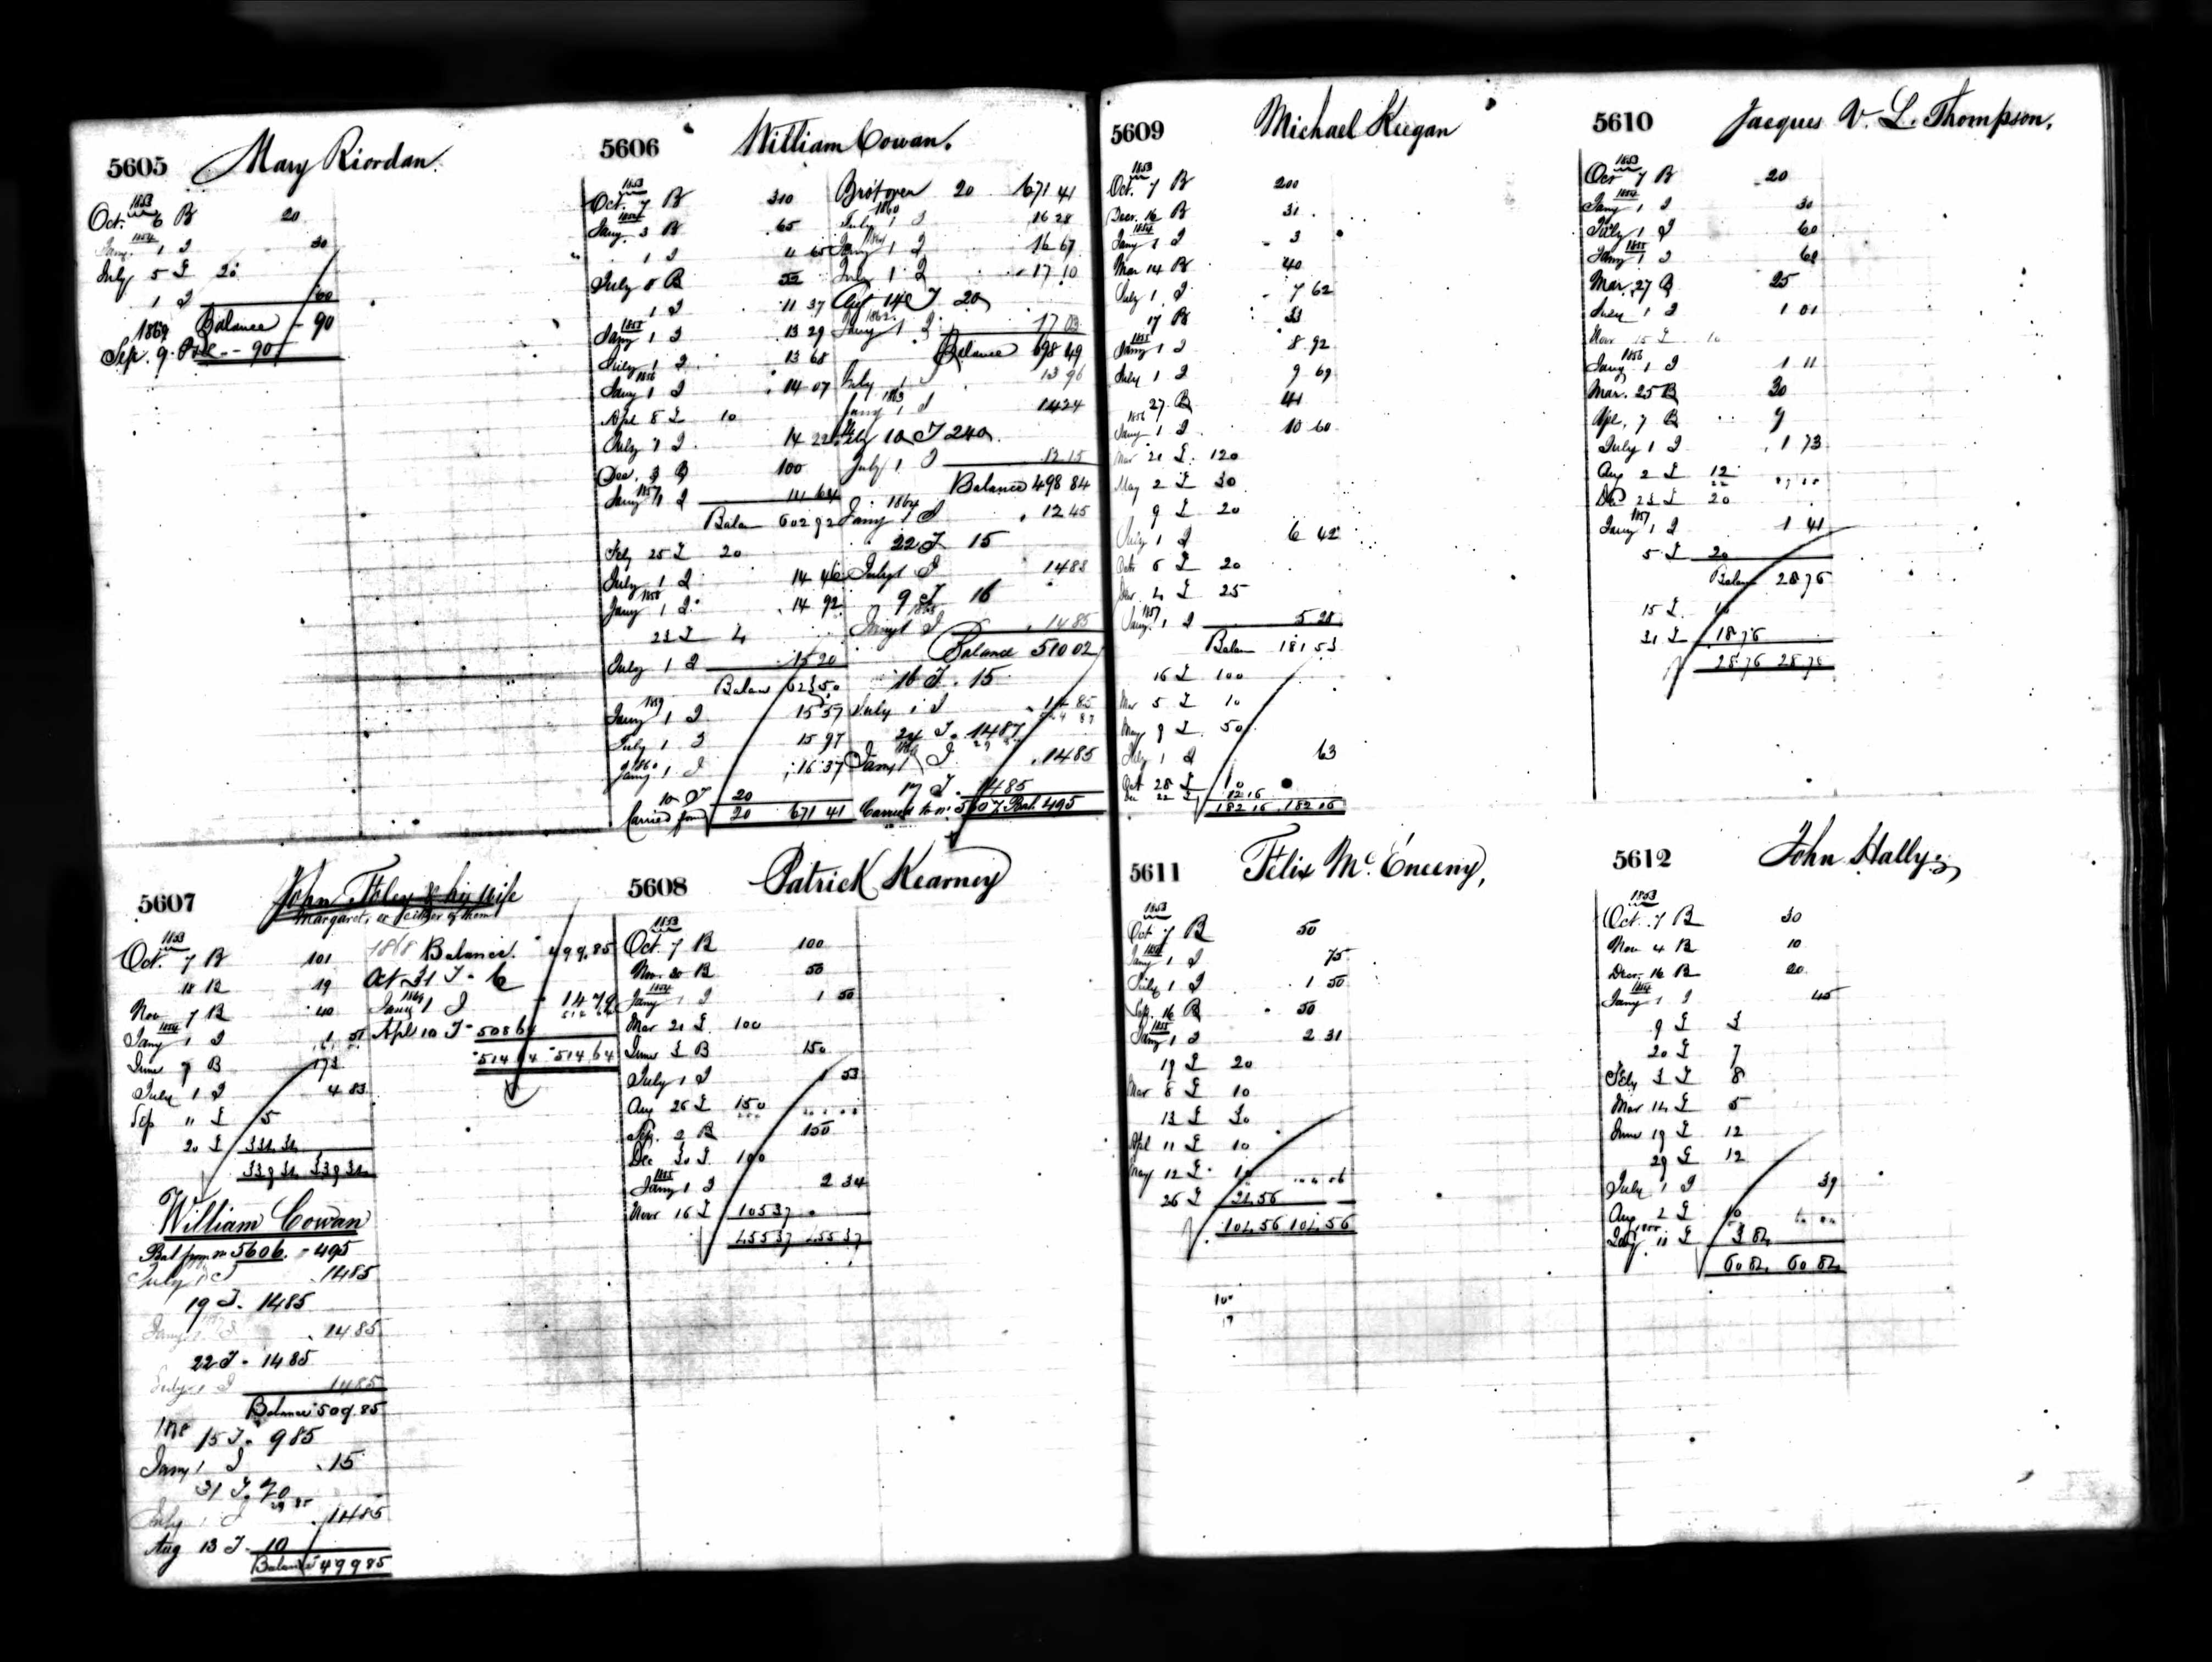 5605 Mary Riordan.
1853
Oct. 6 B 20
1854
Jany. 1 I 30
July 5 T 20
1 I 60
1869 Balance - 90
Sep. 9. - 90
5606 William Cowan.
1853
Oct. 7 B 310
1854
Jany. 3 B 65
1 I 4 65
July 5 B
1 I 11 37
1855
Jany 1 I 13 29
July 1 I 13 68
1856
Jany 1 I 14 07
Apl 8 T 10
July 1 I 14 22
Dec. 3 B 100
1857
Jany 1 I 14 64
Balan 602 92
Feby 25 T 20
July 1 I 14 46
1858
Jany 1 I 14 92
23 T 4
July 1 I 15 20
Balan 623 50
1859
Jany 1 I 15 57
July 1 I 15 97
1860
Jany 1 I 16 37
10 T 20
Carried forwd 20 671 41
Brot over 20 671 41
1860
July 1 I 16 28
1861
Jany 1 I 16 67
July 1 I 17 10
14 T 20
1862
Jany 1 I 17 03
Balance 698 49
July 1 I 13 96
1863
Jany 1 I 14 24
10 T 240
July 1 I 12 15
Balance 498 84
1864
Jany 1 I 12 45
22 T 15
July 1 I 14 83
9 T 16
1865
Jany 1 I 14 85
Balance 510 02
16 T. 15
July 1 I 14 85
24 T. 14 87
1866
Jany 1 I 14 85
17 T. 14 85
Carried to n. 5607 Bal. 495
5607 John Foley & his wife
Margaret, or either of them
1853
Oct. 7 B 101
18 B 19
Nov 7 B 40
1854
Jany 1 I 1 51
June 9 B 173
July 1 I 4 83
Sep " T 5
20 T 334 34
339 34 339 34
William Cowan
Bal from n. 5606. - 495
July 1 I 14 85
19 T. 14 85
Jany 1 I 14 85
22 T. 14 85
July 1 I 14 85
Balance 509.85
15 T. 9 85
Jany 1 I 15
31 T. 20
29 85
July 1 I 14 85
Aug 13 T. 10
Balance 499 85
1868 Balance. 499.85
Oct 31 T. 6
1869
Jany 1 I 14 79
Apl 10 T 508 64
514 64 514 64
5608 Patrick Kearney
1853
Oct. 7 B 100
Nov. 30 B 50
1854
Jany 1 I 1 50
Mar 21 T 100
June 3 B 150
July 1 I 1 53
Aug 26 T 150
Sep. 2 B 150
Dec 30 T 100
1855
Jany 1 I 2 34
Nov 16 T 105 37
455 37 455 37
5609 Michael Keegan
1853
Oct. 7 B 200
Decr. 16 B 31
1854
Jany 1 I 3
Mar 14 B 40
July 1 I 7 62
17 B 33
1855
Jany 1 I 8 92
July 1 I 9 69
27 B 41
1856
Jany 1 I 10 60
Mar 21 T. 120
May 2 T 30
9 T 20
July 1 I 6 42
Octr 6 T 20
4 T 25
1857
Jany 1 I 5 28
Balan 181 53
16 T 100
Mar 5 T 10
May 9 T 50
July 1 I 63
Oct 28 T 10
Dec 22 T 12 16
182 16 182 16
5610 Jacques V. L. Thompson.
1853
Oct 7 B 20
1854
Jany 1 I 30
July 1 I 60
1855
Jany 1 I 60
Mar. 27 B 25
July 1 I 1 01
Nov 15 T 10
1856
Jany 1 I 1 11
Mar. 25 B 30
Apl. 7 B 9
July 1 I 1 73
Aug 2 T 12
22
Dec 23 T 20
1857
Jany 1 I 1 41
5 T 20
Balan 28 76
15 T 10
31 T 18 76
28 76 28 76
5611 Felix McEneeny,
1853
Oct 7 B 50
1854
Jany 1 I 75
July 1 I 1 50
Sep. 16 B 50
1855
Jany 1 I 2 31
19 T 20
Mar 8 T 10
13 T 30
Apl 11 T 10
May 12 T 10
26 T 24 56
104 56 104 56
5612 John Hally
1853
Oct. 7 B 30
Nov 4 B 10
Decr. 16 B 20
1854
Jany 1 I 45
9 T 3
20 T 7
Feby 3 T 8
Mar 14 T 5
June 19 T 12
29 T 12
July 1 I 39
Aug 2 T 10
1855
11 T 3 84
60 84 60 84